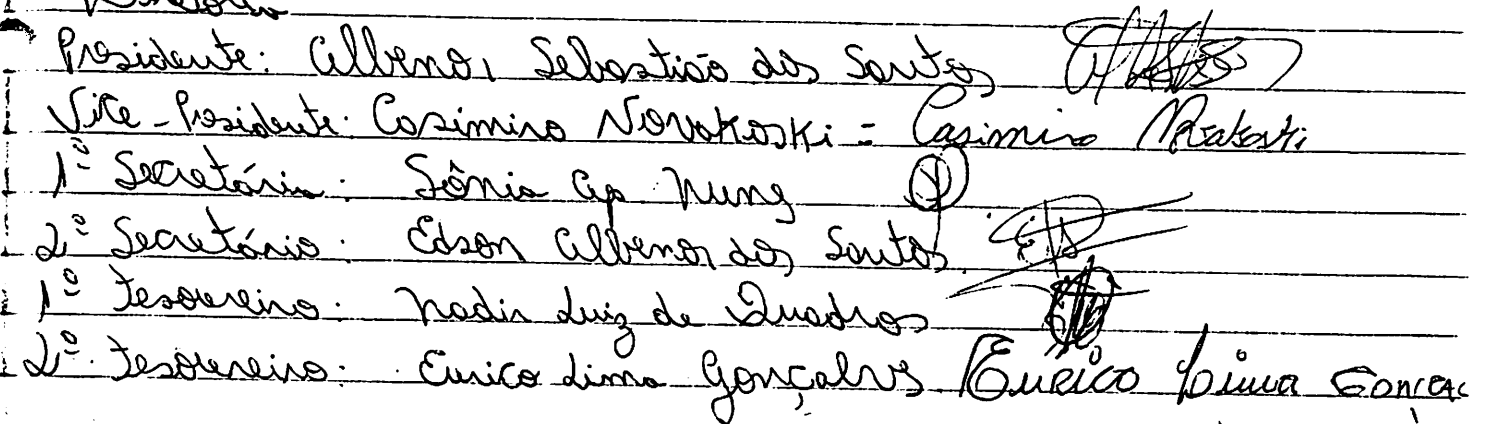 Presidente: Albenor Sebastião dos Santos
Vice-Presidente: Casimiro Novakoski = Casimiro Novakoski
1º Secretária: Sônia Ap Nunz
2º Secretário: Edson Albenor dos Santos.
1º Tesoureiro: Nadir Luiz de Quadros
2º Tesoureiro: Eurico Lima Gonçalves Eurico Lima Goncal